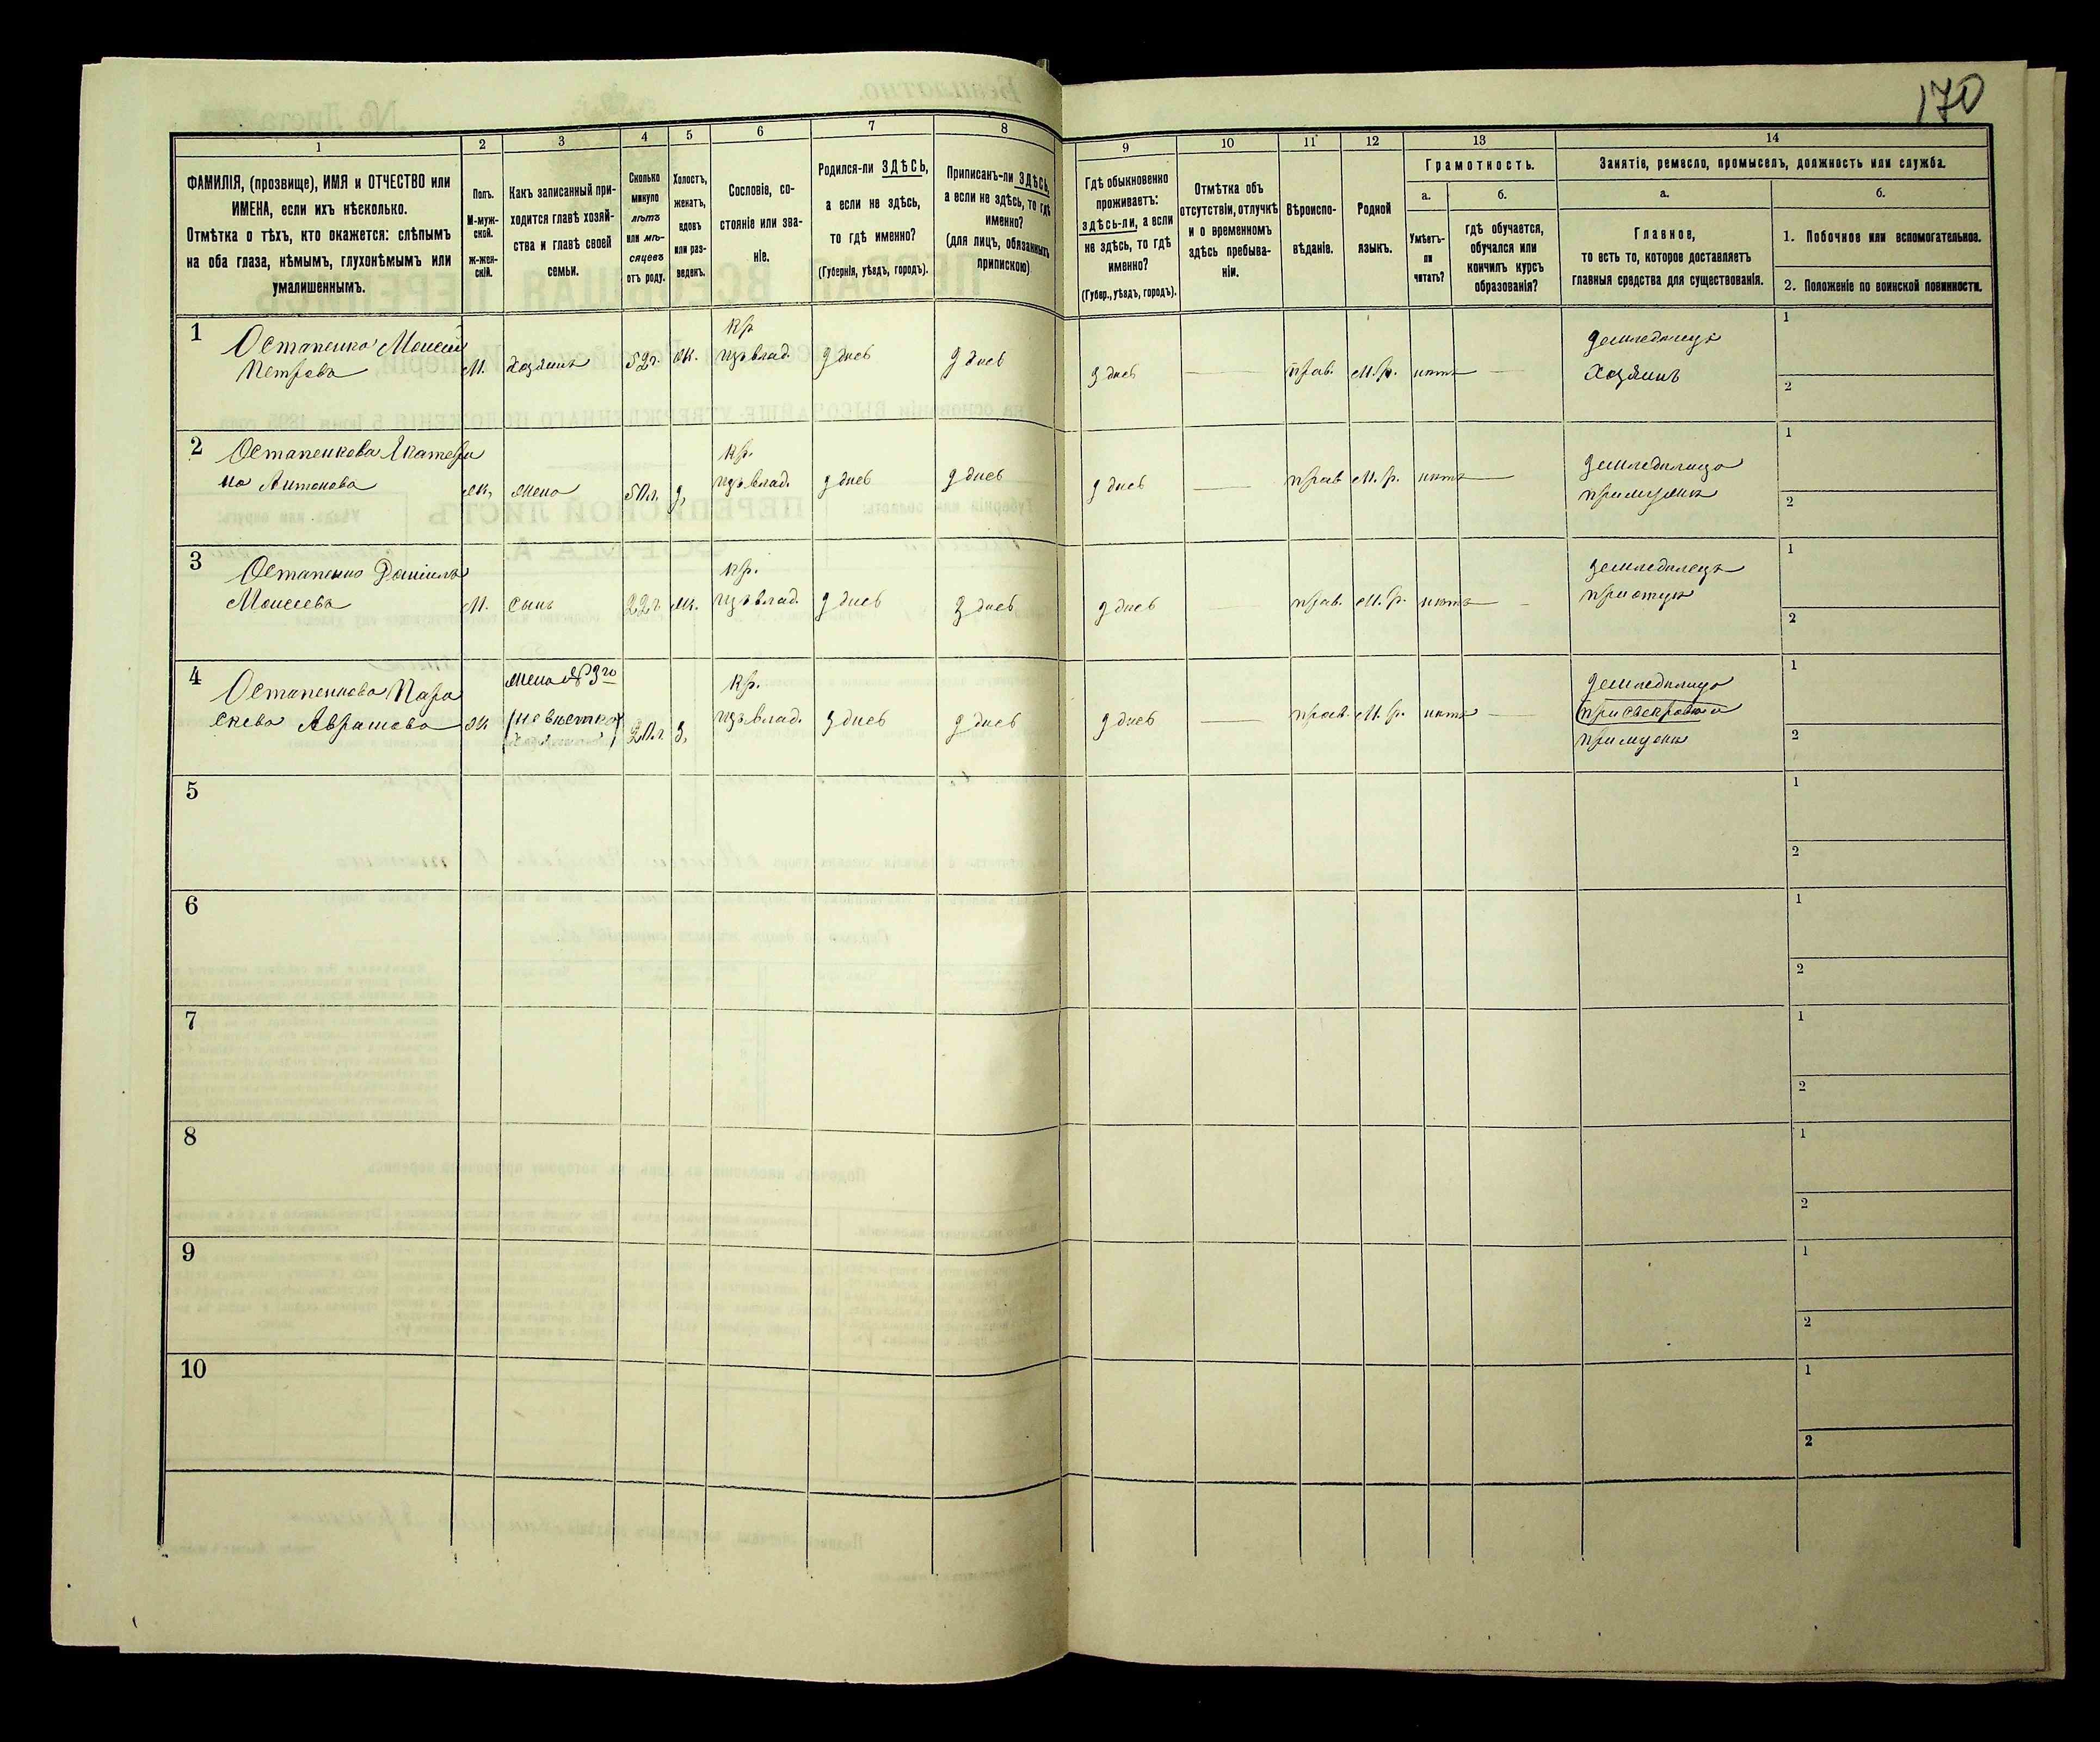 170
1
2
3
4
5
6
7
8
9
10
11
12
13
14
ФАМИЛІЯ, (прозвище), ИМЯ и ОТЧЕСТВО или
ИМЕНА, если ихъ нѣсколько.
Отмѣтка о тѣхъ, кто окажется: слѣпымъ
на оба глаза, нѣмымъ, глухонѣмымъ или
умалишеннымъ.
Полъ.
М-муж-
ской.
ж-жен-
скій.
Какъ записанный при-
ходится главѣ хозяй-
ства и главѣ своей
семьи.
Сколько
минуло
лѣтъ
или мѣ-
сяцевъ
отъ роду.
Холостъ,
женатъ,
вдовъ
или раз-
веденъ.
Сословіе, со-
стояніе или зва-
ніе.
Родился-ли ЗДѢСЬ,
а если не здѣсь,
то гдѣ именно?
(Губернія, уѣздъ, городъ).
Приписанъ-ли ЗДѢСЬ,
а если не здѣсь, то гдѣ
именно?
(для лицъ, обязанныхъ
припискою)
Гдѣ обыкновенно
проживаетъ:
здѣсь-ли, а если
не здѣсь, то гдѣ
именно?
(Губер., уѣздъ, городъ).
Отмѣтка объ
отсутствіи, отлучкѣ
и о временномъ
здѣсь пребыва-
ніи.
Вѣроиспо-
вѣданіе.
Родной
языкъ.
Грамотность.
а.
Умѣетъ-
ли
читать?
б.
гдѣ обучается,
обучался или
кончилъ курсъ
образованія?
Занятіе, ремесло, промыселъ, должность или служба.
а.
Главное,
то есть то, которое доставляетъ
главныя средства для существованія.
б.
1. Побочное или вспомогательное.
2. Положеніе по воинской повинности.
1
Остапенко Моисей
Петровъ
М.
хозяинъ
52г.
ж.
кр.
изъ влад.
здесь
здесь
здесь
прав.
М. р.
нѣтъ
земледелецъ
хозяинъ
1
2
2
Остапенкова Екатери
на Антонова
ж.
жена
50л.
з.
кр.
изъ влад.
здесь
здесь
здесь
прав
М. р.
нѣтъ
земледелица
при мужѣ
1
2
3
Остапенко Даніилъ
Моисеевъ
М.
сынъ
22г
ж.
кр.
изъ влад.
здесь
здесь
здесь
прав.
М. р.
нѣтъ
земледелецъ
при отцѣ
1
2
4
Остапенкова Пара
скева Аврамова
ж
жена № 3го
(невѣстка
20л
з,
кр.
изъ влад.
здесь
здесь
здесь
прав.
М. р.
нѣтъ
земледелица
при свекрови и
при мужѣ
1
2
5
1
2
6
1
2
7
1
2
8
1
2
9
1
2
10
1
2